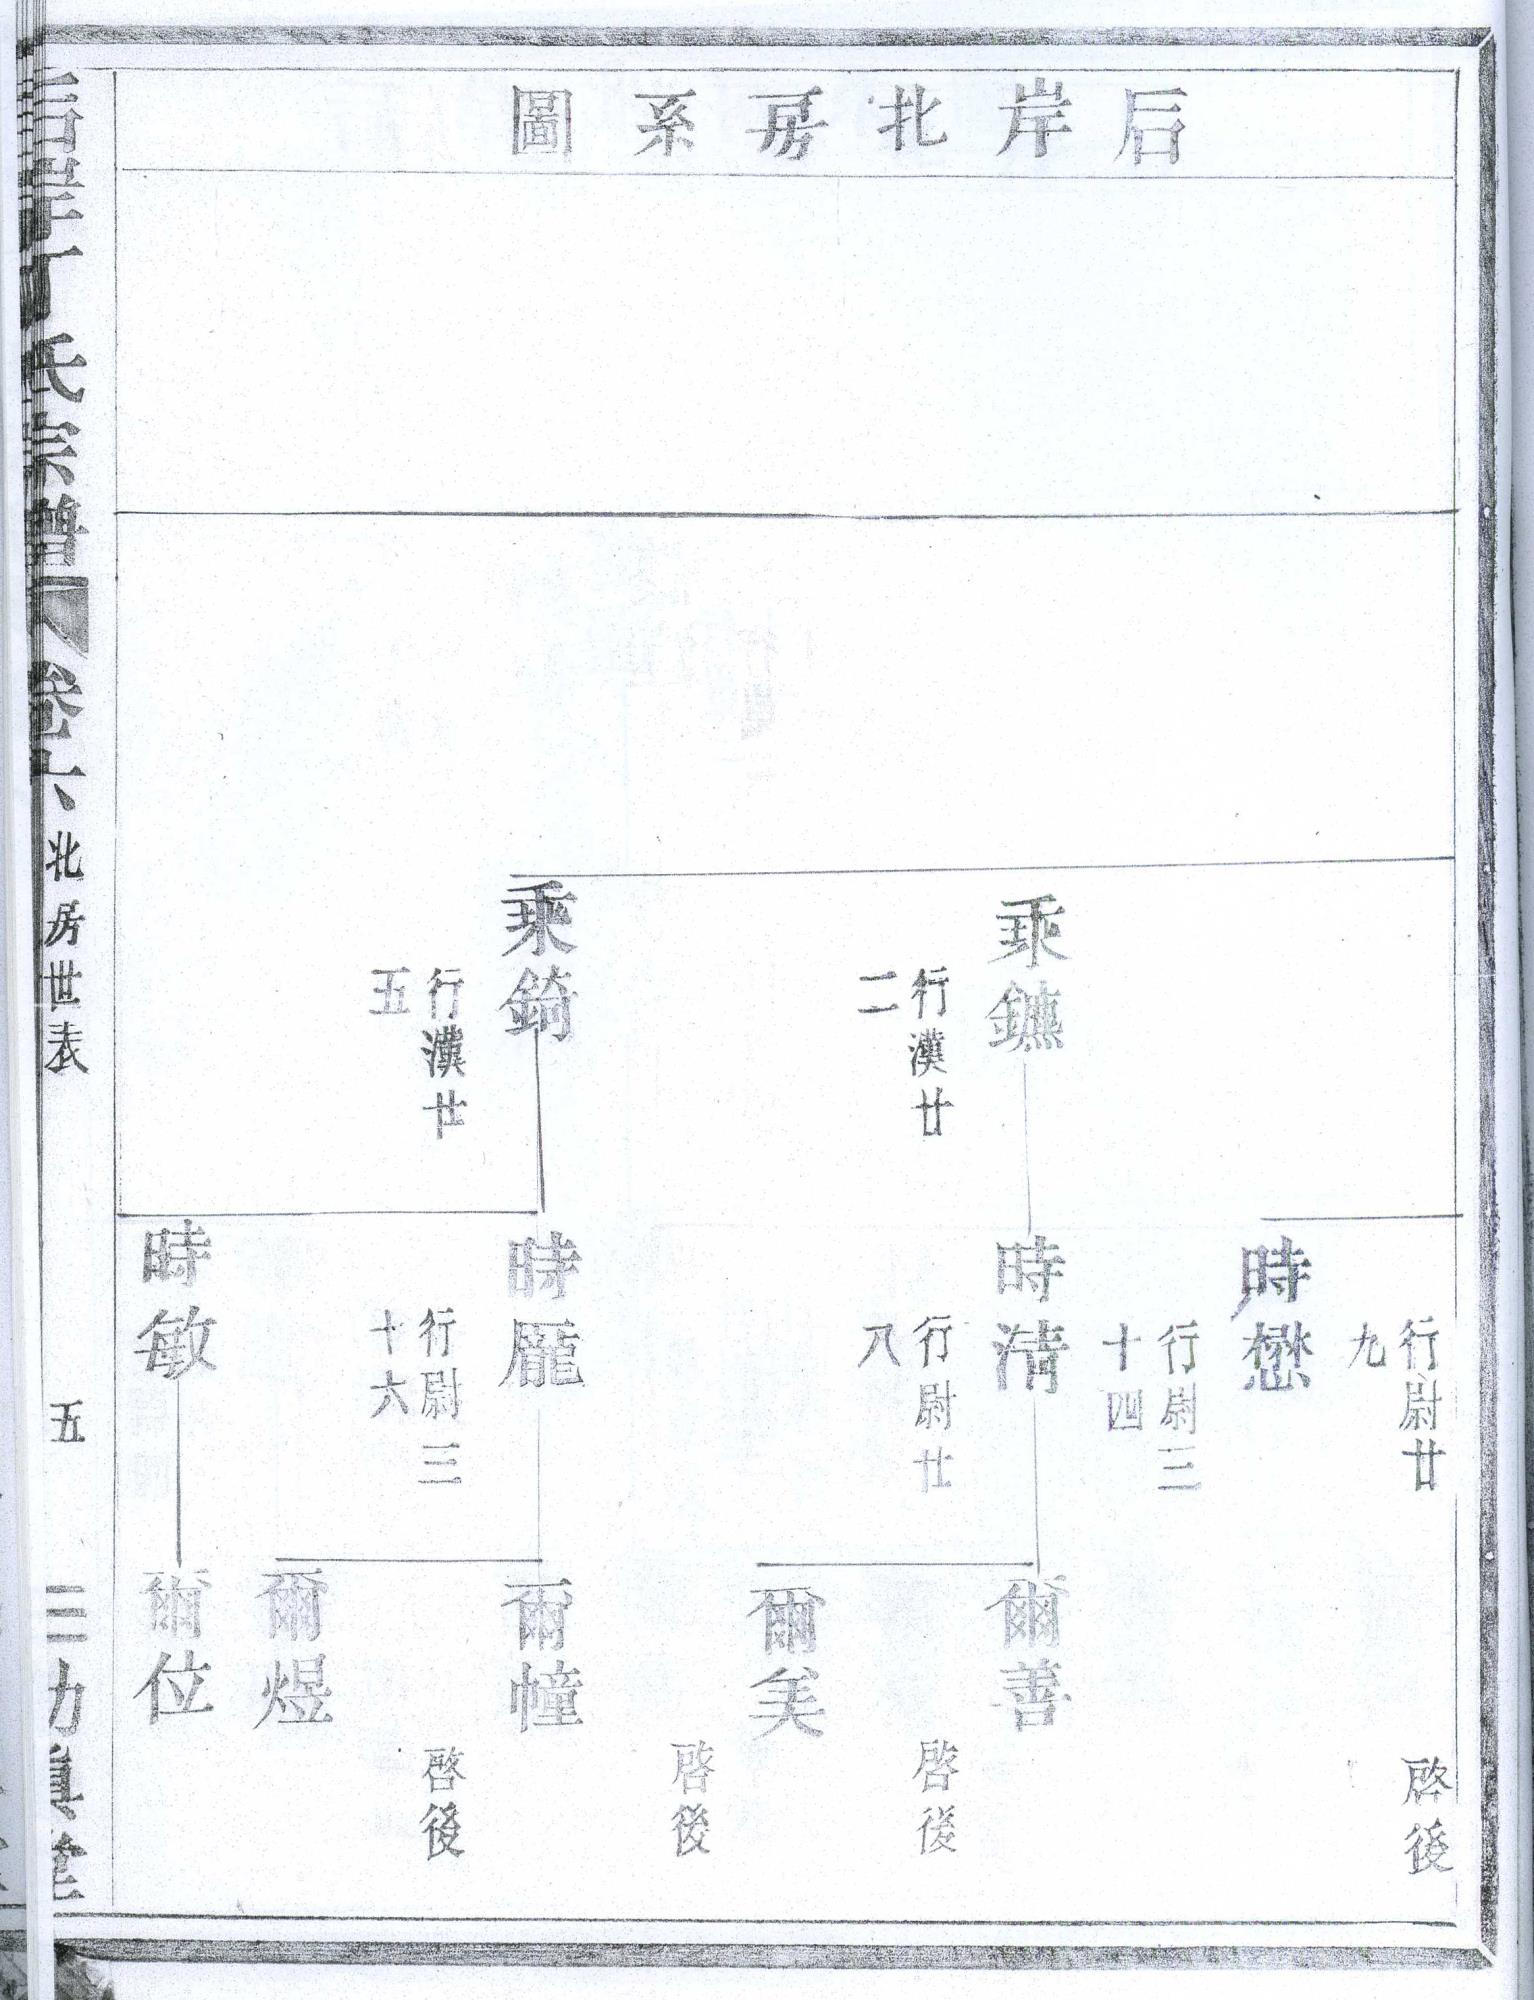 后岸北房系圖
乘鑣
行漢廿
二
乘錡
行漢廿
五
行尉廿
九
時懋
行尉三
十四
時清
行尉廿
八
時龎
行尉三
十六
時敏
啓後
爾善
啓後
爾美
啓後
爾幢
啓後
爾煜
爾位
后岸丁氏宗譜
卷六
北房世表
五
三